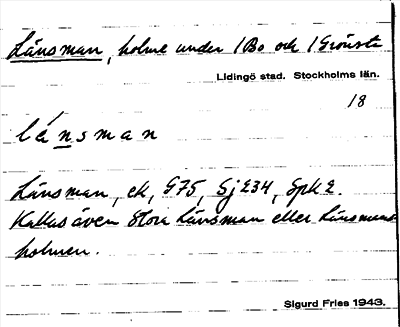 Länsman, holme under 1 Bo och 1 Grönsta
Lidingö stad. Stockholms län.
18
lénsman
Länsman, ek, G75, Sj E34, Spk 2.
Kallas även Stora Länsman eller Länsmans
holmen.
Sigurd Fries 1943.